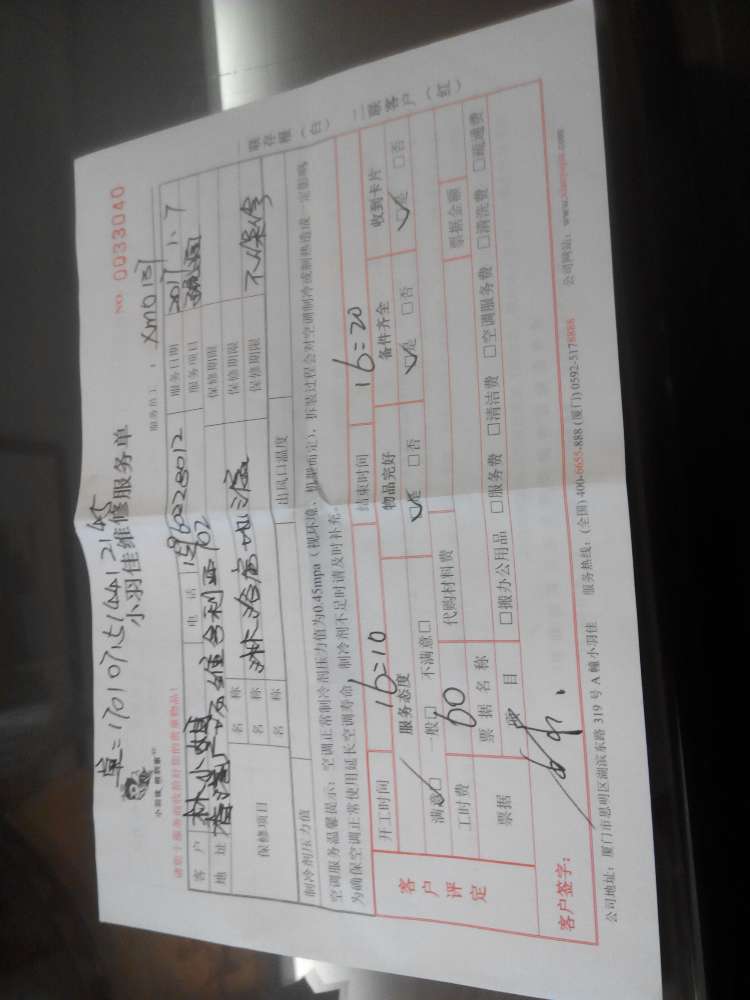 单=170107151441 2145
小羽佳维修服务单
NO. 0033040
请您于服务前收拾好您的贵重物品!
服务员1: XM0131
客户 林小姐 电话 服务日期 2017.1.7
地址 服务项目
保修项目 名称 保修期限
名称 淋浴房地漏 保修期限
名称 保修期限 不保修
制冷剂压力值 出风口温度
空调服务温馨提示:空调正常制冷剂压力值为0.45mpa(视环境、机型而定),拆装过程会对空调制冷或制热造成一定影响,
为确保空调正常使用延长空调寿命,制冷剂不足时请及时补充。
一联存根(白) 二联客户(红)
客户评定
开工时间 16:10 结束时间 16:20
服务态度 物品完好 备件齐全 收到卡片
满意□ 一般□ 不满意□ □是 □否 □是 □否 □是 □否
工时费 60 代购材料费 票据金额
票据 票据名称
项目 □搬办公用品 □服务费 □清洁费 □空调服务费 □清洗费 □疏通费
客户签字:
公司地址:厦门市思明区湖滨东路 319 号 A 幢小羽佳 服务热线:(全国) 400-6655-888 (厦门) 0592-5178888 公司网站:www.xiaoyujia.com